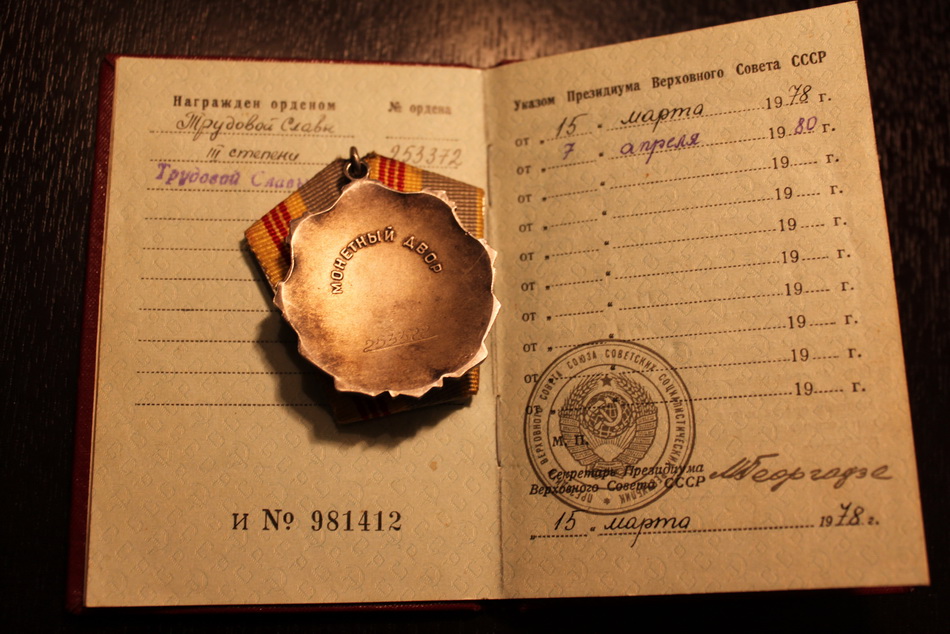 Награжден орденом № ордена
Трудовой Славы
III степени 253372
Трудовой Славы
МОНЕТНЫЙ ДВОР
И № 981412
Указом Президиума Верховного Совета СССР
от " 15 " марта 1978 г.
от " 7 " апреля 1980 г.
от " " 19 г.
от " " 19 г.
от " " 19 г.
от " " 19 г.
от " " 19 г.
от " " 19 г.
от " " 19 г.
ВЕРХОВНОГО СОВЕТА СОЮЗА СОВЕТСКИХ СОЦИАЛИСТИЧЕСКИХ
М. П.
Секретарь Президиума
Верховного Совета СССР МГеоргадзе
" 15 " марта 1978 г.